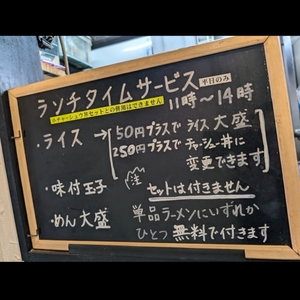 ランチタイムサービス 平日のみ
※チャーシュウ丼セットとの併用はできません
11時〜14時
・ライス→
50円プラスで ライス大盛
250円プラスで チャーシュー丼に
変更できます
・味付玉子
(注)
セットは付きません
・めん大盛
単品ラーメンにいずれか
ひとつ 無料で付きます